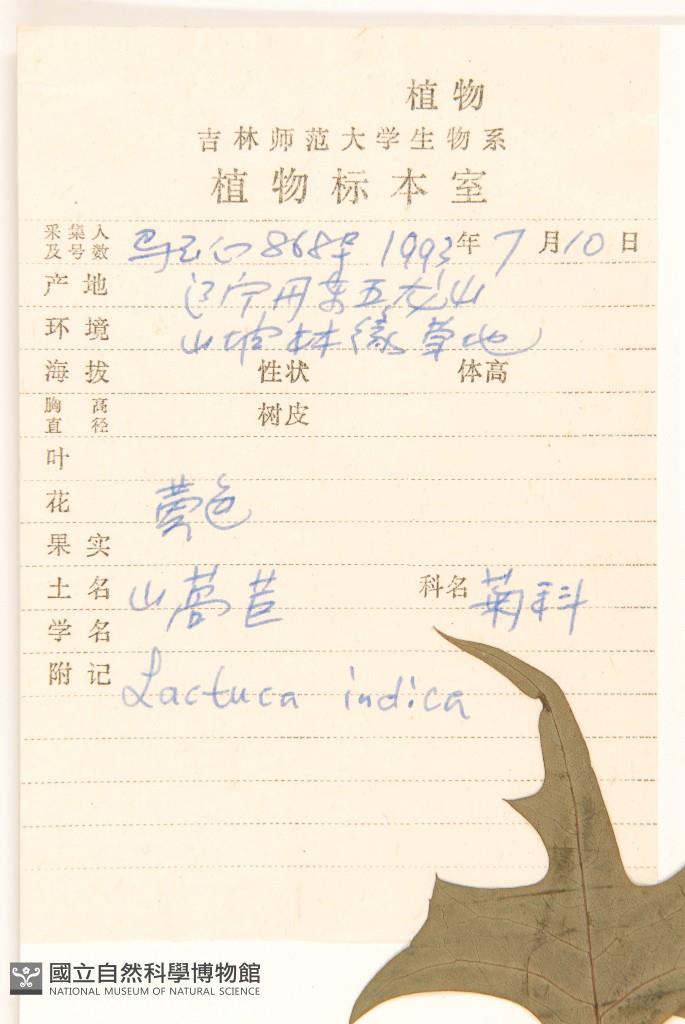 植物
吉林师范大学生物系
植物标本室
采集人及号数 868号 1993年7月10日
产地 辽宁丹东五龙山
环境 山坡林缘草地
海拔 性状 体高
胸高直径 树皮
叶
花 黄色
果实
土名 山莴苣 科名 菊科
学名
附记 Lactuca indica
國立自然科學博物館
NATIONAL MUSEUM OF NATURAL SCIENCE